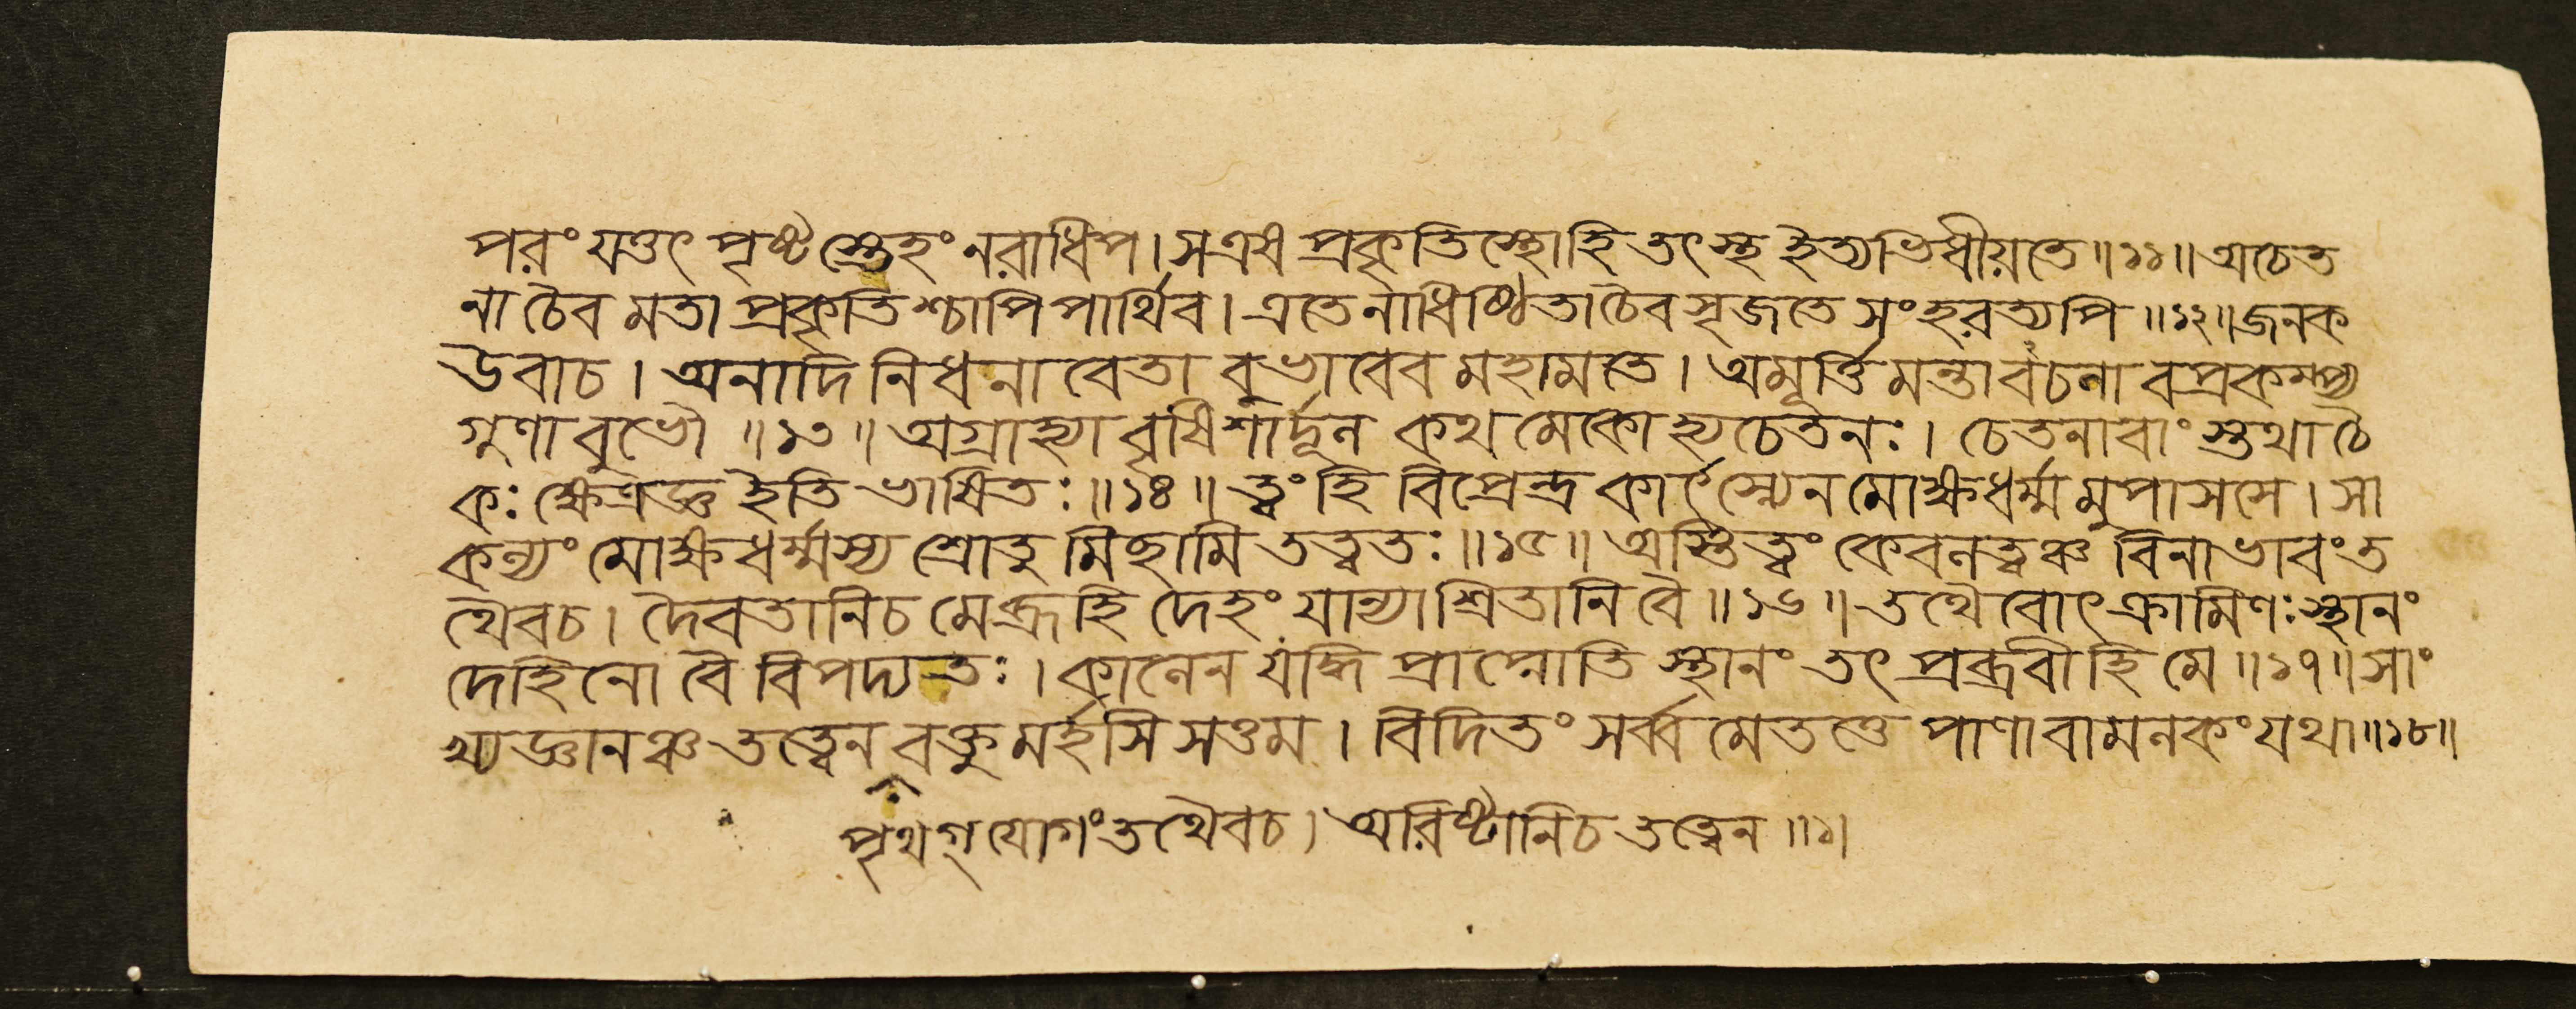 পরং যত্তৎ পৃষ্টস্তেহং নরাধিপ। স এষ প্রকৃতিস্থো হি তৎস্থ ইত্যভিধীয়তে॥১১॥ অচেত
না চৈব মতা প্রকৃতিশ্চাপি পার্থিব। এতেনাধিষ্ঠিতা চৈব সৃজতে সংহরত্যপি॥১২॥ জনক
উবাচ। অনাদিনিধনাবেতা বুভাবেব মহামতে। অমূর্ত্তিমন্তাবচনাবপ্রকম্প্য
গুণাবুভৌ॥১৩॥ অগ্রাহ্যাবৃষিশার্দূল কথমেকোহ্যচেতনঃ। চেতনাবাংস্তথা চৈ
কঃ ক্ষেত্রজ্ঞ ইতি ভাষিতঃ॥১৪॥ ত্বং হি বিপ্রেন্দ্র কার্ৎস্ন্যেন মোক্ষধর্ম্মমুপাসসে। সা
কল্যং মোক্ষধর্ম্মস্য শ্রোতুমিছামি তত্ত্বতঃ॥১৫॥ অস্তিত্বং কেবলত্বঞ্চ বিনাভাবং ত
থৈব চ। দৈবতানি চ মে ব্রূহি দেহং যান্যাশ্রিতানি বৈ॥১৬॥ তথৈবোৎক্রামিণঃ স্থানং
দেহিনো বৈ বিপদ্যতঃ। কালেন যদ্ধি প্রাপ্নোতি স্থানং তৎ প্রব্রবীহি মে॥১৭॥ সাং
খ্যজ্ঞানঞ্চ তত্ত্বেন বক্তুমর্হসি সত্তম। বিদিতং সর্ব্বমেতত্তে পাণাবামলকং যথা॥১৮॥
পৃথগ্‌যোগং তথৈব চ। অরিষ্টানি চ তত্ত্বেন॥১।